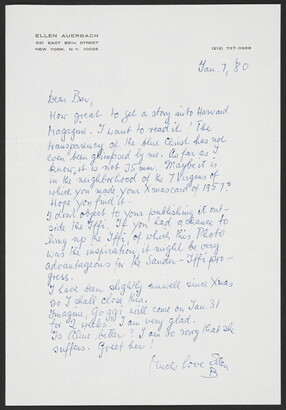 ELLEN AUERBACH
321 EAST 85TH STREET
NEW YORK, N.Y. 10028
(212) 737-0988
Jan. 7, '80
Dear Ben,
How great to get a story into Harvard
Magazine. I want to read it! The
transparency of the blue Christ has not
even been glimpsed by me. As far as I
know, it is not 35 mm. Maybe it is
in the neighborhood of the 7 Virgins of
which you made your Xmascard of 1957?
Hope you find it.
I don't object to your publishing it out-
side the Iffi. If you had a chance to
bring up the Iffi, of which this Photo
was the inspiration, it might be very
advantageous for the Sander-Iffi pro-
gress.
I have been slightly unwell since Xmas
so I shall close this.
Imagine, Goggi will come on Jan. 31
for 2 weeks! I am very glad.
Is Aline better? I am so sorry that she
suffers. Greet her!
Much love Ellen